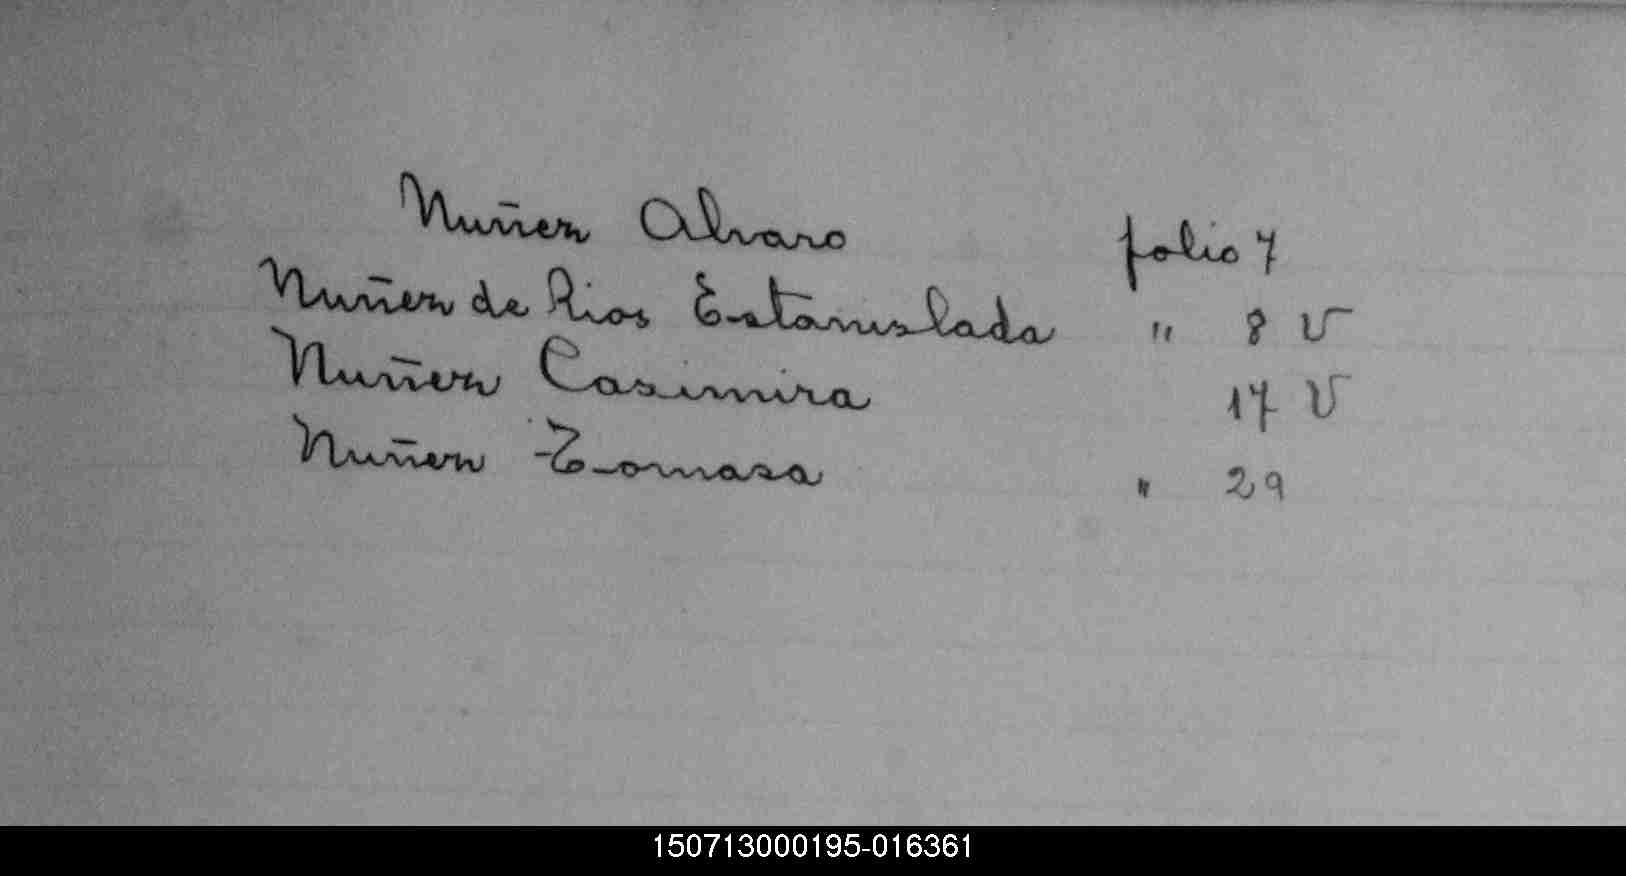 Nuñez Alvaro folio 7
Nuñez de Rios Estanislada " 8 V
Nuñez Casimira 17 V
Nuñez Tomasa " 29
150713000195-016361